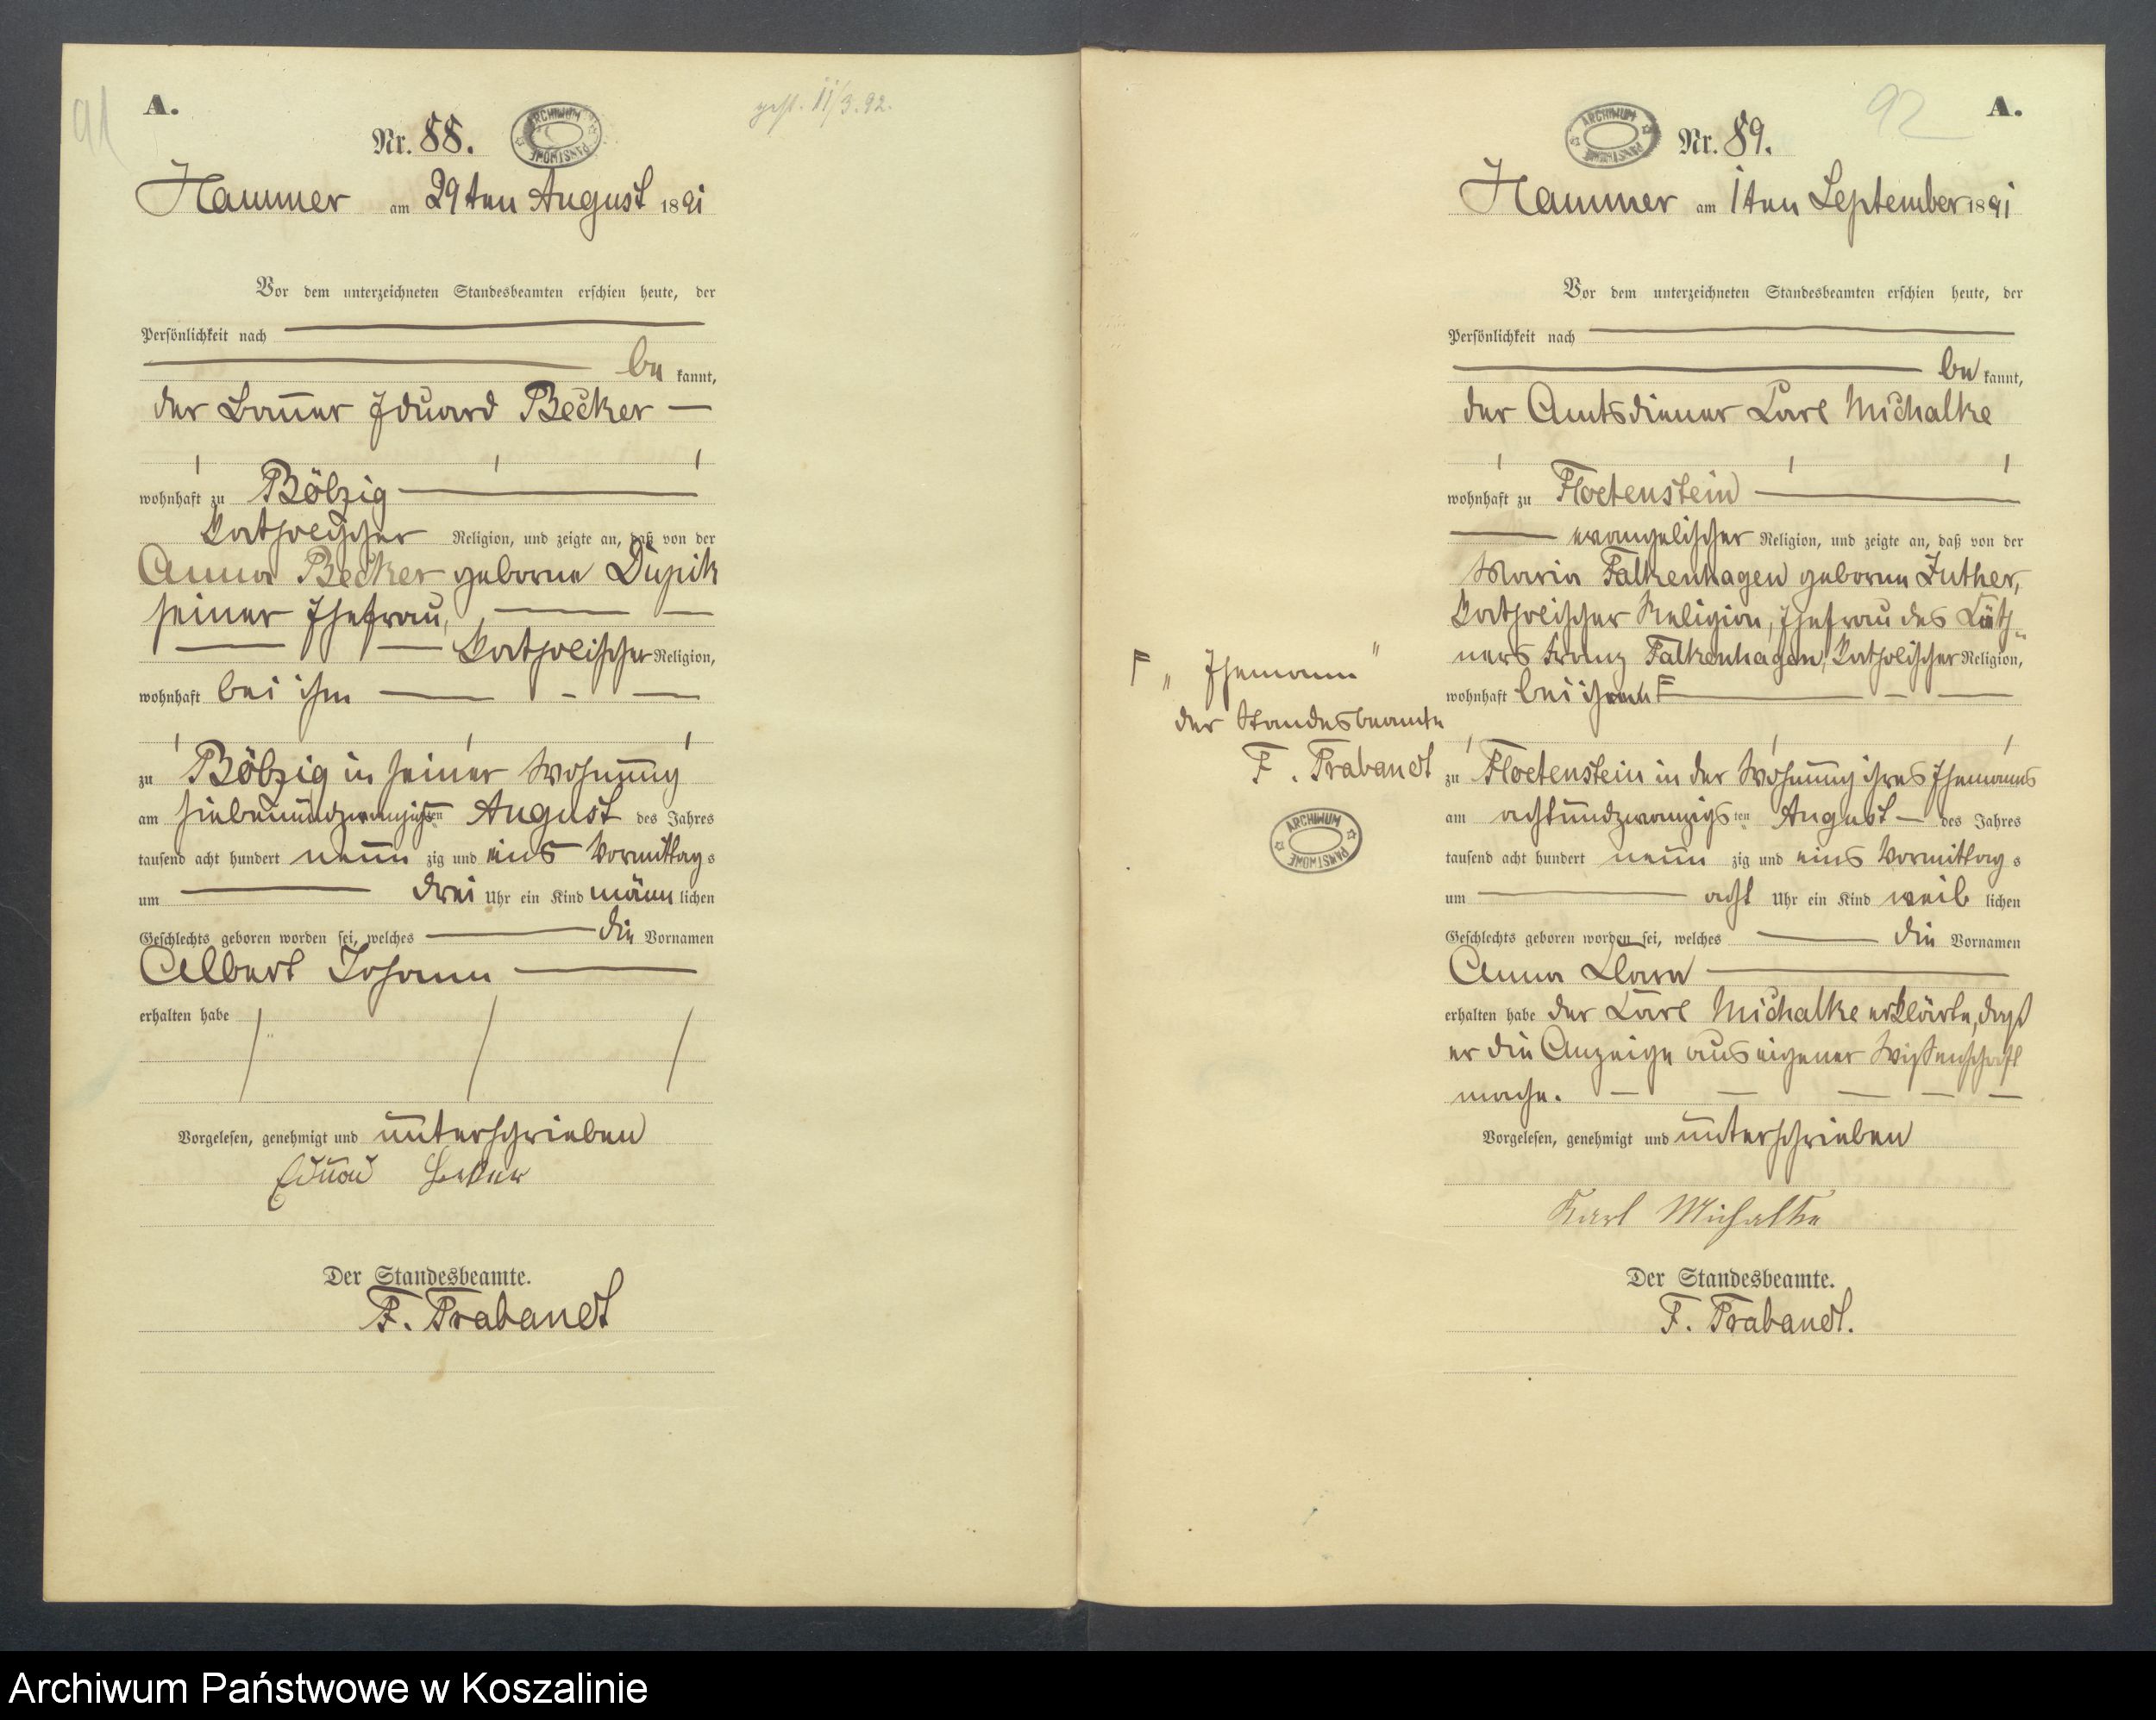 91
A.
Nr. 88.
ARCHIWUM PAŃSTWOWE
gest. 11/3.92.
Hammer am 29ten August 1891
Vor dem unterzeichneten Standesbeamten erschien heute, der
Persönlichkeit nach
be kannt,
der Bauer Eduard Becker
wohnhaft zu Bölzig
katholischer Religion, und zeigte an, daß von der
Anna Becker geborne
seiner Ehefrau,
katholischer Religion,
wohnhaft bei ihm
zu Bölzig in seiner Wohnung
am siebenundzwanzigsten August des Jahres
tausend acht hundert neun zig und eins Vormittags
um drei Uhr ein Kind männ lichen
Geschlechts geboren worden sei, welches die Vornamen
Albert Johann
erhalten habe
Vorgelesen, genehmigt und unterschrieben
Eduard Becker
Der Standesbeamte.
F. Trabandt
92
A.
ARCHIWUM PAŃSTWOWE
Nr. 89.
Hammer am 1ten September 1891
Vor dem unterzeichneten Standesbeamten erschien heute, der
Persönlichkeit nach
be kannt,
der Amtsdiener Carl Michalke
wohnhaft zu Floetenstein
evangelischer Religion, und zeigte an, daß von der
Maria Falkenhagen geborne Luther,
katholischer Religion, Ehefrau des Käth-
ners Franz Falkenhagen, katholischer Religion,
wohnhaft bei ihrem F
F „ Ehemann "
der Standesbeamte
F. Trabandt
ARCHIWUM PAŃSTWOWE
zu Floetenstein in der Wohnung ihres Ehemanns
am achtundzwanzigs ten August des Jahres
tausend acht hundert neun zig und eins Vormittag s
um acht Uhr ein Kind weib lichen
Geschlechts geboren worden sei, welches die Vornamen
Anna Clara
erhalten habe der Carl Michalke erklärte, daß
er die Anzeige aus eigener Wißenschaft
mache.
Vorgelesen, genehmigt und unterschrieben
Karl Michalke
Der Standesbeamte.
F. Trabandt.
Archiwum Państwowe w Koszalinie